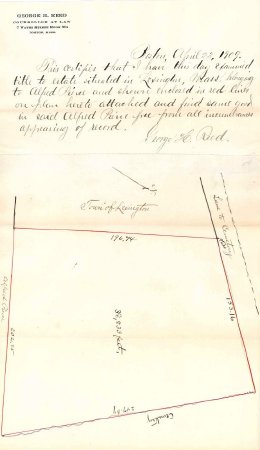 GEORGE H. REED
COUNSELLOR AT LAW
BOSTON, MASS.
Boston, April 29, 1909.
This certifies that I have this day examined
title to estate situated in Lexington, Mass. belonging
to Alfred Pierce and shown enclosed in red lines
on plan hereto attached and find same good
in said Alfred Pierce free from all incumbrances
appearing of record.
George H. Reed.
Town of Lexington
196.74
Lane to Cemetery
Cemetery